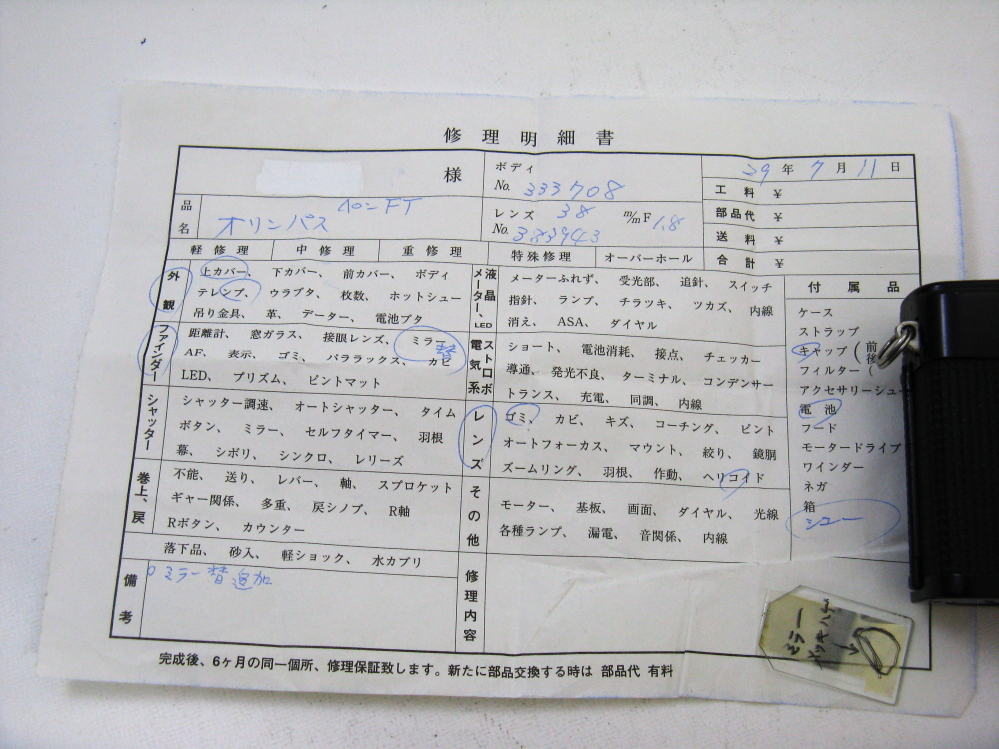 修理明細書
様
ボディ
No. 333708
29年 7月 11日
品名
オリンパス ペンFT
レンズ 38 m/m F 1.8
No. 383943
工料 ¥
部品代 ¥
送料 ¥
合計 ¥
軽修理 中修理 重修理 特殊修理 オーバーホール
外観
上カバー、 下カバー、 前カバー、 ボディ
テレンプ、 ウラブタ、 枚数、 ホットシュー
吊り金具、 革、 データー、 電池ブタ
ファインダー
距離計、 窓ガラス、 接眼レンズ、 ミラー 替
AF、 表示、 ゴミ、 パララックス、 カビ
LED、 プリズム、 ピントマット
シャッター
シャッター調速、 オートシャッター、 タイム
ボタン、 ミラー、 セルフタイマー、 羽根
幕、 シボリ、 シンクロ、 レリーズ
巻上、戻
不能、 送り、 レバー、 軸、 スプロケット
ギャー関係、 多重、 戻シノブ、 R軸
Rボタン、 カウンター
落下品、 砂入、 軽ショック、 水カブリ
液晶メーター、LED
メーターふれず、 受光部、 追針、 スイッチ
指針、 ランプ、 チラツキ、 ツカズ、 内線
消え、 ASA、 ダイヤル
ストロボ電気系
ショート、 電池消耗、 接点、 チェッカー
導通、 発光不良、 ターミナル、 コンデンサー
トランス、 充電、 同調、 内線
レンズ
ゴミ、 カビ、 キズ、 コーチング、 ピント
オートフォーカス、 マウント、 絞り、 鏡胴
ズームリング、 羽根、 作動、 ヘリコイド
その他
モーター、 基板、 画面、 ダイヤル、 光線
各種ランプ、 漏電、 音関係、 内線
付属品
ケース
ストラップ
キャップ(前後
フィルター(
アクセサリーシュー
電池
フード
モータードライブ
ワインダー
ネガ
箱
シュー
備考
ミラー替追加
修理内容
ミラー
完成後、6ヶ月の同一個所、修理保証致します。新たに部品交換する時は 部品代 有料